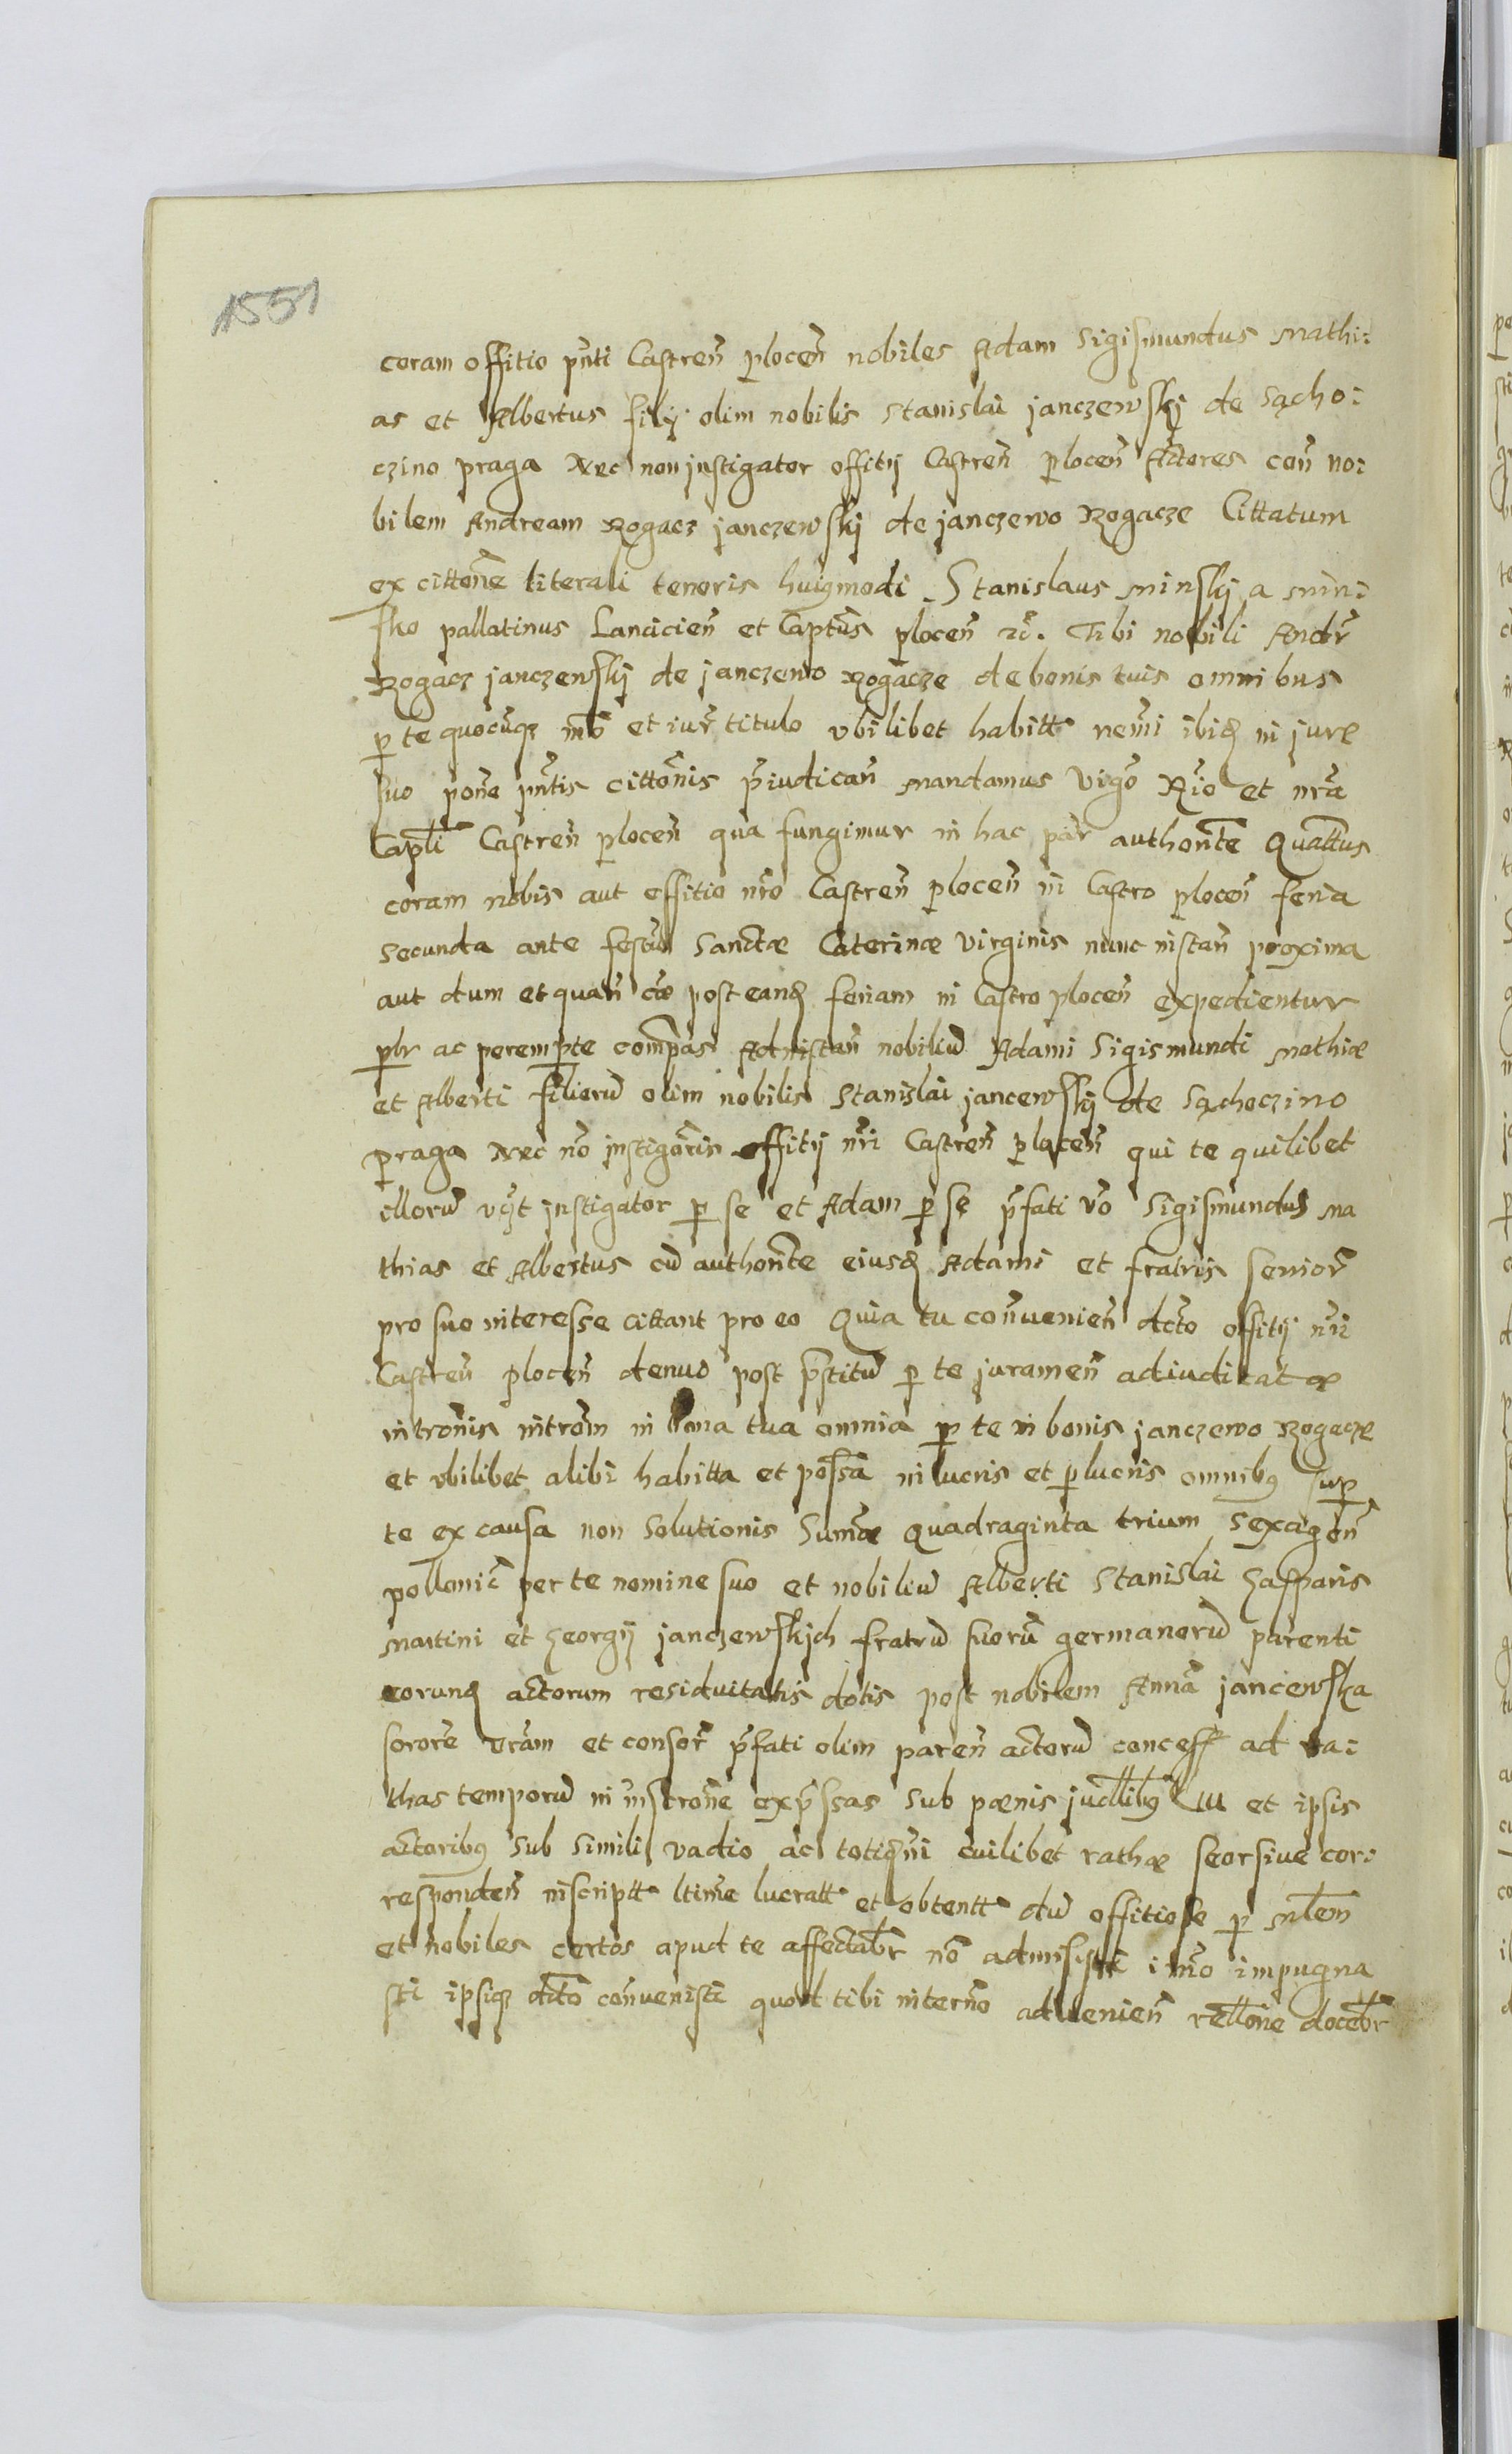 1551
coram offitio pñti Castreñ plocen̄ nobiles Adam Sigismundus Mathi:
as et Albertus filij olim nobilis Stanislai janczewskj de Sącho:
czino praga Nec non jnstigator offitij Castreñ plocen̄ Actores con̄ no:
bilem Andream Rogacz janczewskj de janczewo Rogacze Cittatum
ex cittoñe literali tenoris huiɡmodi . Stanislaus Minskj a Min:
sko pallatinus Lancicien̄ et Captũs plocen̄ zc̃. Tibi nobili Andr̃
Rogacz janczewskj de janczewo Rogacze de bonis tuis omnibus
p te quocũqz mõ et iur̃ titulo vbilibet habitt nem̃i ibid̃ in jure
suo pon̄e pñtis cittoñis p̃iudican̄ Mandamus vigõ R̃io et nr̃a
Capl̃i Castreñ plocen̄ qua fungimur in hac par̃ authoñte Quattus
coram nobis aut offitio nr̃o Castreñ plocen̄ in Castro plocen̄ feria
secunda ante festũ Sanctæ Caterinæ virginis nunc instan̄ proxima
aut dum et quan̄ cæ post eand̃ feriam in Castro plocen̄ expedientur
plr ac perempte comp̃as Ad instan̄ nobiliũ Adami Sigismundi Mathiæ
et Alberti filiorũ olim nobilis Stanislai jancewskij de Sącheczino
praga Nec nõ jnstigoris offitij nr̃i Castreñ plocen̄ qui te quilibet
illorũ vq̃t jnstigator p se et Adam p se p̃fati võ Sigismundus Ma
thias et Albertus cũ authoñte eiusd̃ Adami et fratris senior̃
pro suo interesse cittant pro eo Quia tu con̄uenien̄ dc̃to offitij nr̃i
Castreñ plocen̄ denuo post p̃stitũ p te juramen̄ adiudicatæ
intromis introm̃ in bona tua omnia p te in bonis janczewo Rogacze
et vbilibet alibi habitta et possã in lucris et plucris omnibɡ sup
te ex causa non solutionis Sumæ Quadraginta trium Sexagen̄
pollonic̃ per te nomine suo et nobiliũ Alberti Stanislai Gasparis
Martini et Georgij janczewskich fratrũ suorũ germanorũ parenti
eorund̃ actorum residuitatis dotis post nobilem Annã jancewska
sororẽ vr̃am et consor̃ p̃fati olim paren̄ actorũ concess ad ra:
thas temporũ in inscroñe exp̃ssas sub pœnis judlibɡ et ipsis
actoribɡ sub simili vadio ac totiqm̃i cuilibet rathæ seorsiue cor:
responden̄ inscriptt ltim̃e lucratt et obtentt dũ offitiose p Mlem̃
et nobiles certos apud te affectabr̃ nõ admisisti im̃o impugna
sti ipsiqz dc̃to con̄uenisti quod tibi in ter̃no aduenien̄ rellon̄e docebr̃